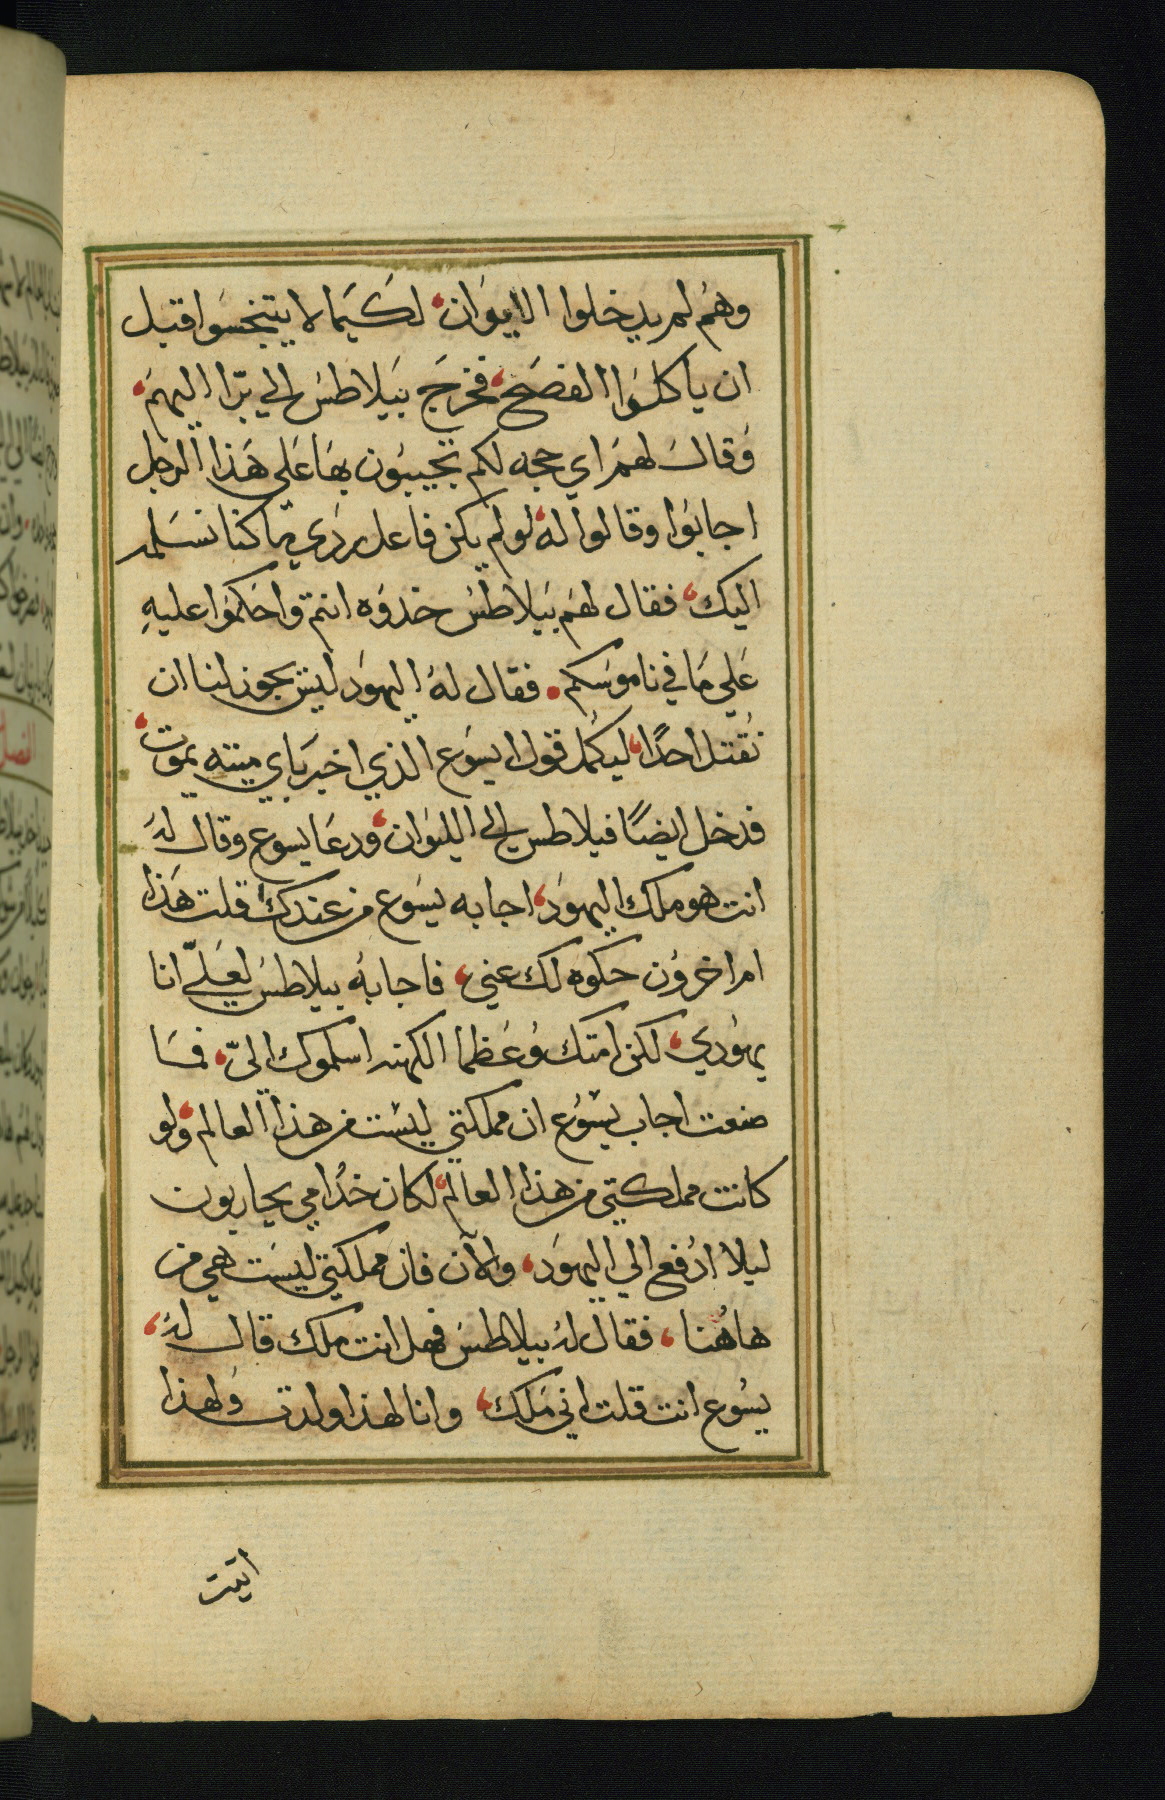 وهُم لم يدخلوا الايوَان، لكَيما لا يتنجسَوا قبل
ان ياكلوَا الفصَح، فخرجَ بيَلاطسَ الي برّا اليهمَ،
وَقالَ لهمَ اي حجه لكم تجيبوَن بهَا عَلى هَذا الرجل
اجابوَا وقالوا لهُ، لو لم يكن فاعل ردَي ما كنا نسَلمه
اليك، فقال لهَم بيَلاطسُ خذوَه انتم واحَكموَا عليهِ
عَلي مَا في ناموسَكم. فقال لهُ اليهوَد ليسَ يجوز لنا ان
نُقتل احدًا، ليكمُل قول ايسوَع الذي اخبر بَاي ميته يموت،
فدخل ايضًا فيلاطس الي الليوَان، ودعَا يسوع وقال لهَ
انت هو ملك اليهوَد، اجابه يسَوع من عندك قلت هَذا
ام اخروُن حكوه لك عني، فاجابهُ بيلاطسَ لعَليّ انا
يهوُدي، لكن امتك وُعَظما الكهنه اسلموك اليّ، فمَا
صنعت اجاب يسُوُع ان مملكتي ليسُت من هذا العالم، ولو
كانت مملكتي من هذا العالم، لكان خدُامي يحاربون
ليلا ادُفع الي اليهوَد، والآن فان مملكتي ليسَت هي من
هاهُنا، فقال لهُ بيلاطسَ فهل انت ملك قال لهُ،
يسُوع انت قلت اني مَلك، وانا لهذا ولدت وُلهذا
اتيت